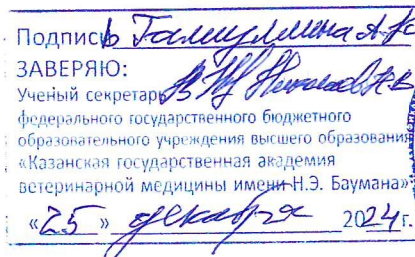 Подпись
ЗАВЕРЯЮ:
Ученый секретарь
федерального государственного бюджетного
образовательного учреждения высшего образования
«Казанская государственная академия
ветеринарной медицины имени Н.Э. Баумана»
«25» декабря 2024 г.